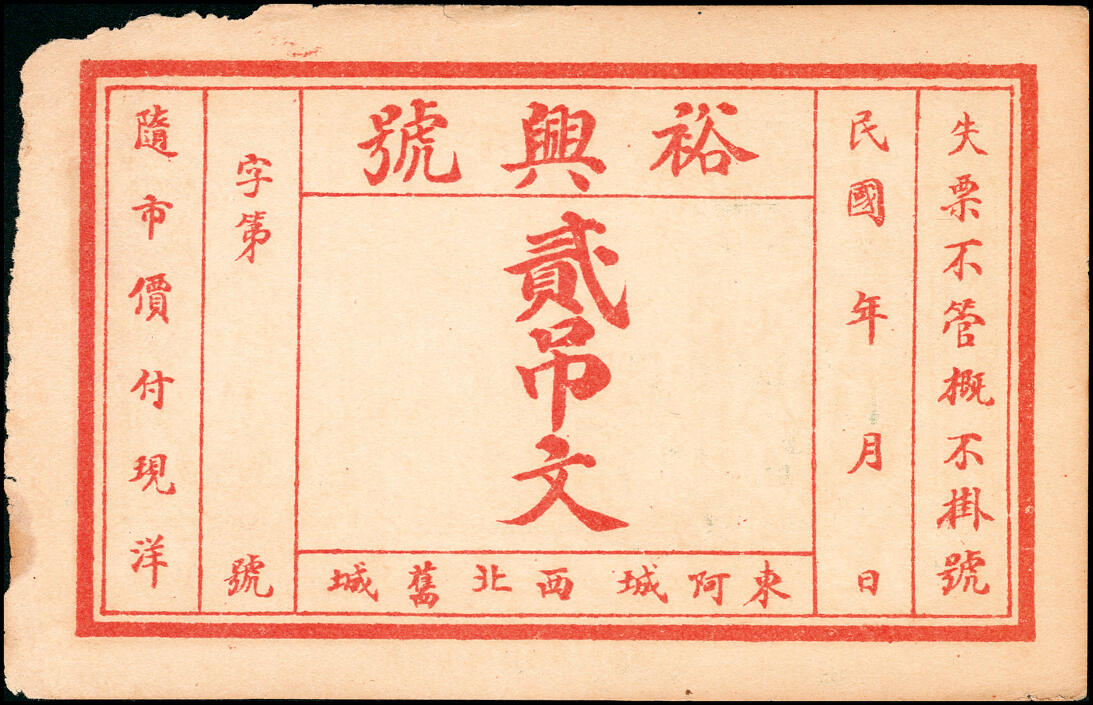 失票不管概不掛號
民國 年 月 日
裕興號
貳吊文
東阿城西北舊城
字第 號
隨市價付現洋